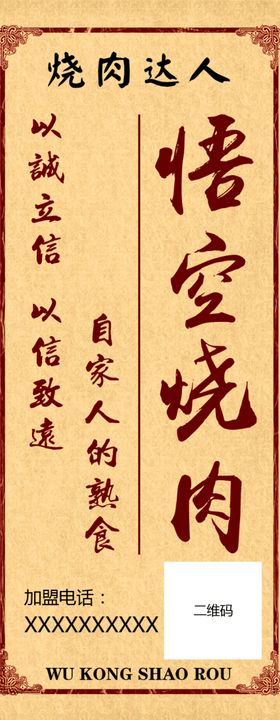 烧肉达人
悟空烧肉
自家人的熟食
以誠立信 以信致遠
加盟电话：
XXXXXXXXXX
二维码
WU KONG SHAO ROU